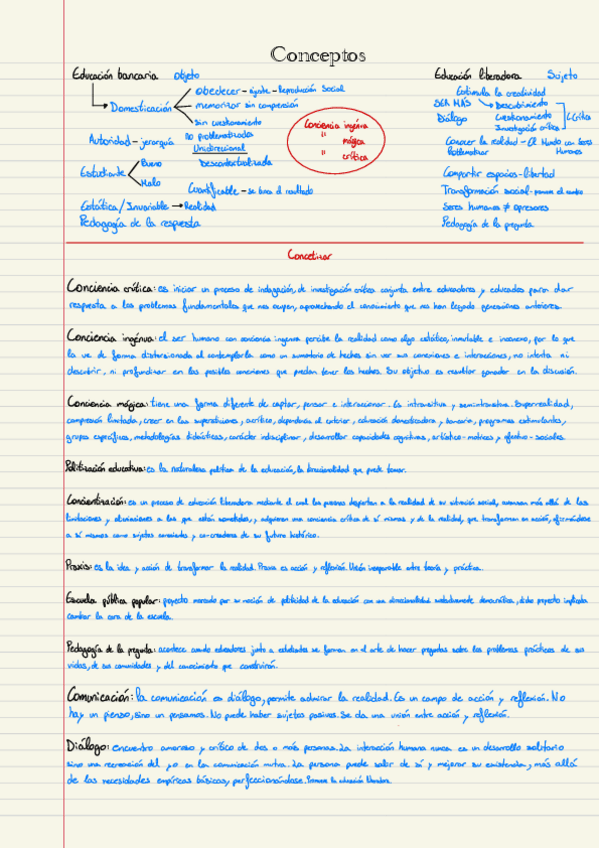 Conceptos
Educación bancaria objeto
Domesticación
obedecer - Reproducción Social
memorizar sin comprensión
sin cuestionamiento
no problematizada
Autoridad - jerarquía
Unidireccional
Descontextualizada
Estudiante
Bueno
Malo
Cuantificable - se busca el resultado
Estática / Invariable → Realidad
Pedagogía de la respuesta
Conciencia ingénua
" mágica
" crítica
Educación liberadora Sujeto
Estimula la creatividad
SER MÁS Descubrimiento
Diálogo Cuestionamiento
Investigación crítica
Conocer la realidad - El Mundo con Seres
Problematizar Humanos
Compartir espacios-libertad
Transformación social - promueve el cambio
Seres humanos ≠ opresores
Pedagogía de la pregunta
Concetizar
Conciencia crítica: es iniciar un proceso de indagación, de investigación crítica conjunta entre educadores y educados para dar
respuesta a los problemas fundamentales que nos ocupen, aprovechando el conocimiento que nos han legado generaciones anteriores.
Conciencia ingénua: el ser humano con conciencia ingenua percibe la realidad como algo estático, inmutable e incenevo, por lo que
la ve de forma distorsionada al contemplarla como un sumatorio de hechos sin ver sus conexiones e interacciones, no intenta ni
descubrir, ni profundizar en las posibles conexiones que puedan tener los hechos. Su objetivo es resultar ganador en la discusión.
Conciencia mágica: tiene una forma diferente de captar, pensar e interaccionar. Es intransitiva y semintransitiva. Superrealidad,
compresión limitada, creer en las supersticiones, acrítico, dependencia al exterior, educación domesticadora y bancaria, programas estimulantes,
grupos específicos, metodologías didácticas, carácter indisciplinar, desarrollar capacidades cognitivas, artístico-motrices y afectivo-sociales.
Politización educativa: es la naturaleza política de la educación, la direccionalidad que puede tomar.
Concientización: es un proceso de educación liberadora mediante el cual las personas despiertan a la realidad de su situación social, avanzan más allá de las
limitaciones y alienaciones a las que están sometidos, y adquieren una conciencia crítica de sí mismos y de la realidad, que transforman en acción, afirmándose
a sí mismos como sujetos conscientes y co-creadores de su futuro histórico.
Praxis: es la idea y acción de transformar la realidad. Praxis es acción y reflexión. Unión inseparable entre teoría y práctica.
Escuela pública popular: proyecto marcado por su noción de politicidad de la educación con una direccionalidad democrática, dicho proyecto implicaba
cambiar la cara de la escuela.
Pedagogía de la pregunta: acontece cuando educadores junto a estudiantes se forman en el arte de hacer preguntas sobre los problemas prácticos de sus
vidas, de sus comunidades y del conocimiento que construirán.
Comunicación: la comunicación es diálogo, permite admirar la realidad. Es un campo de acción y reflexión. No
hay un pienso, sino un pensamos. No puede haber sujetos pasivos. Se da una unión entre acción y reflexión.
Diálogo: encuentro amoroso y crítico de dos o más personas. La interacción humana nunca es un desarrollo solitario
sino una recreación del yo en la comunicación mutua. La persona puede salir de sí y mejorar su existencia, más allá
de las necesidades empíricas básicas, perfeccionándose. Promueve la educación liberadora.